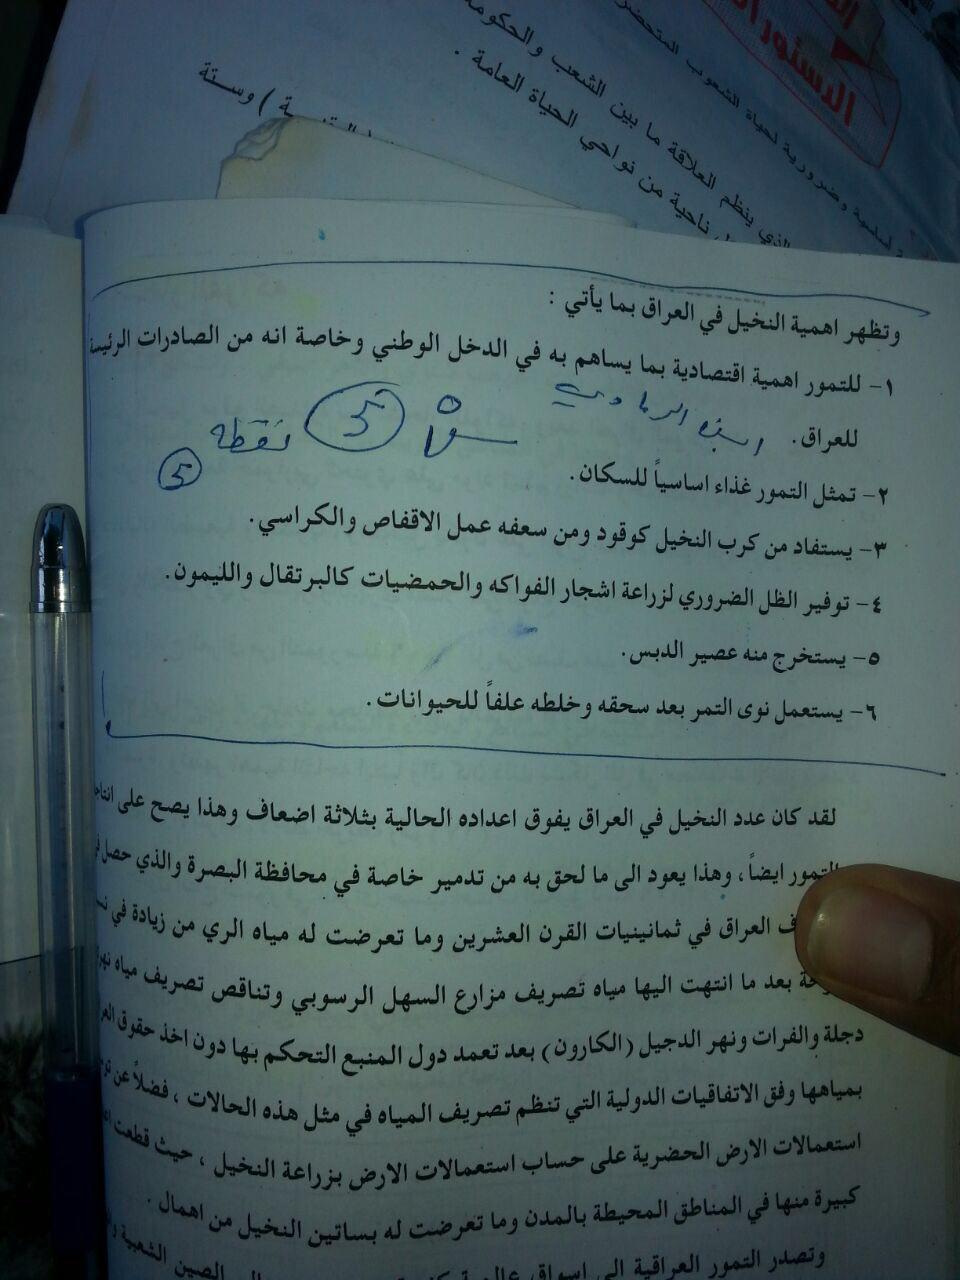 الدستور
ضرورية لحياة الشعوب المتحضر
الذي ينظم العلاقة ما بين الشعب والحكومة
ناحية من نواحي الحياة العامة .
) وستة
وتظهر اهمية النخيل في العراق بما يأتي :
١- للتمور اهمية اقتصادية بما يساهم به في الدخل الوطني وخاصة انه من الصادرات الرئيسة
للعراق.
5 نقطه
5
٢- تمثل التمور غذاء اساسياً للسكان.
٣- يستفاد من كرب النخيل كوقود ومن سعفه عمل الاقفاص والكراسي.
٤- توفير الظل الضروري لزراعة اشجار الفواكه والحمضيات كالبرتقال والليمون.
٥- يستخرج منه عصير الدبس.
٦- يستعمل نوى التمر بعد سحقه وخلطه علفاً للحيوانات.
لقد كان عدد النخيل في العراق يفوق اعداده الحالية بثلاثة اضعاف وهذا يصح على
التمور ايضاً، وهذا يعود الى ما لحق به من تدمير خاصة في محافظة البصرة والذي حصل
العراق في ثمانينيات القرن العشرين وما تعرضت له مياه الري من زيادة في
بعد ما انتهت اليها مياه تصريف مزارع السهل الرسوبي وتناقص تصريف مياه
دجلة والفرات ونهر الدجيل (الكارون) بعد تعمد دول المنبع التحكم بها دون اخذ حقوق
بمياهها وفق الاتفاقيات الدولية التي تنظم تصريف المياه في مثل هذه الحالات ، فضلاً عن
استعمالات الارض الحضرية على حساب استعمالات الارض بزراعة النخيل ، حيث قطعت
كبيرة منها في المناطق المحيطة بالمدن وما تعرضت له بساتين النخيل من اهمال .
وتصدر التمور العراقية الى اسواق الصين الشعبية